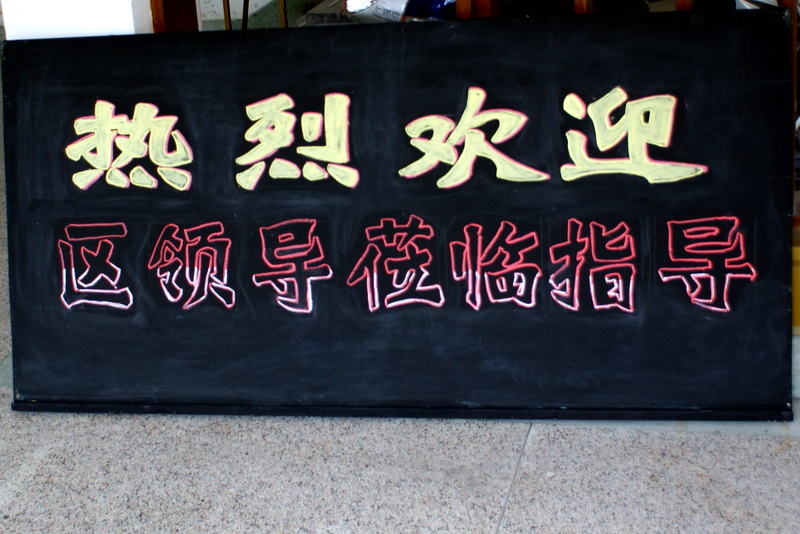 热烈欢迎
区领导莅临指导